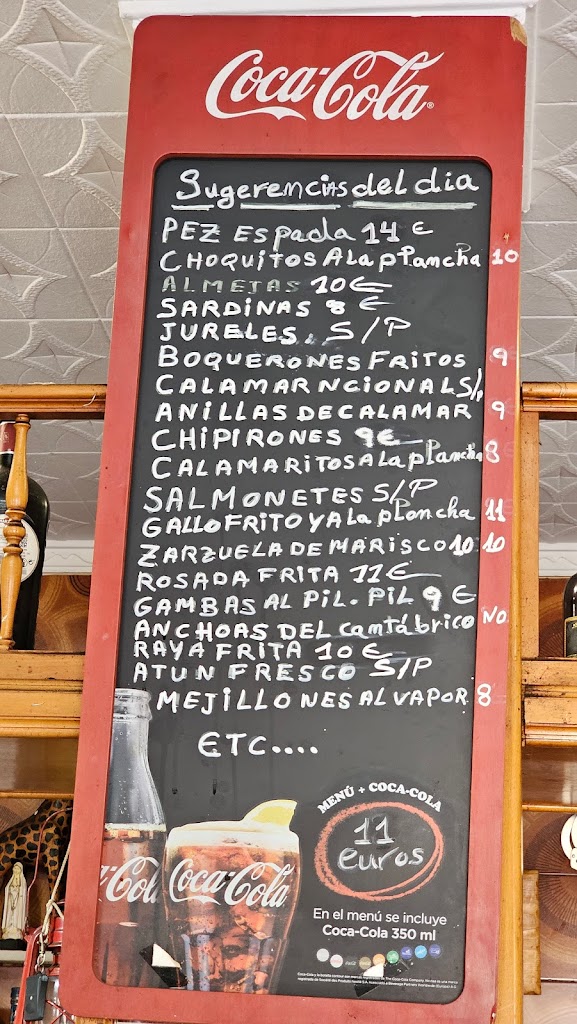 Coca-Cola
Sugerencias del dia
PEZ Espada 14 €
CHOQUITOS A la plancha 10
ALMEJAS 10€
SARDINAS 8 €
JURELES. S/P
BOQUERONES FRITOS 9
CALAMAR NCIONAL S/P
ANILLAS DE CALAMAR 9
CHIPIRONES 9€
CALAMARITOS A La plancha 8
SALMONETES S/P
GALLO FRITO Y A la plancha 11
ZARZUELA DE MARISCO 10 10
ROSADA FRITA 11€
GAMBAS AL PIL. PIL 9 €
ANCHOAS DEL cantábrico NO
RAYA FRITA 10 €
ATUN FRESCO S/P
MEJILLONES AL VAPOR 8
ETC....
MENÚ + COCA-COLA
11
euros
Coca-Cola
Coca-Cola
En el menú se incluye
Coca-Cola 350 ml